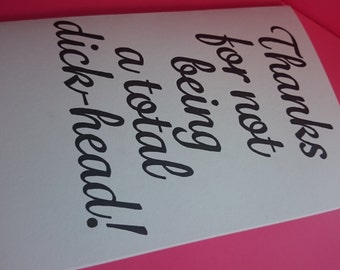 Thanks
for not
being
a total
dick-head!